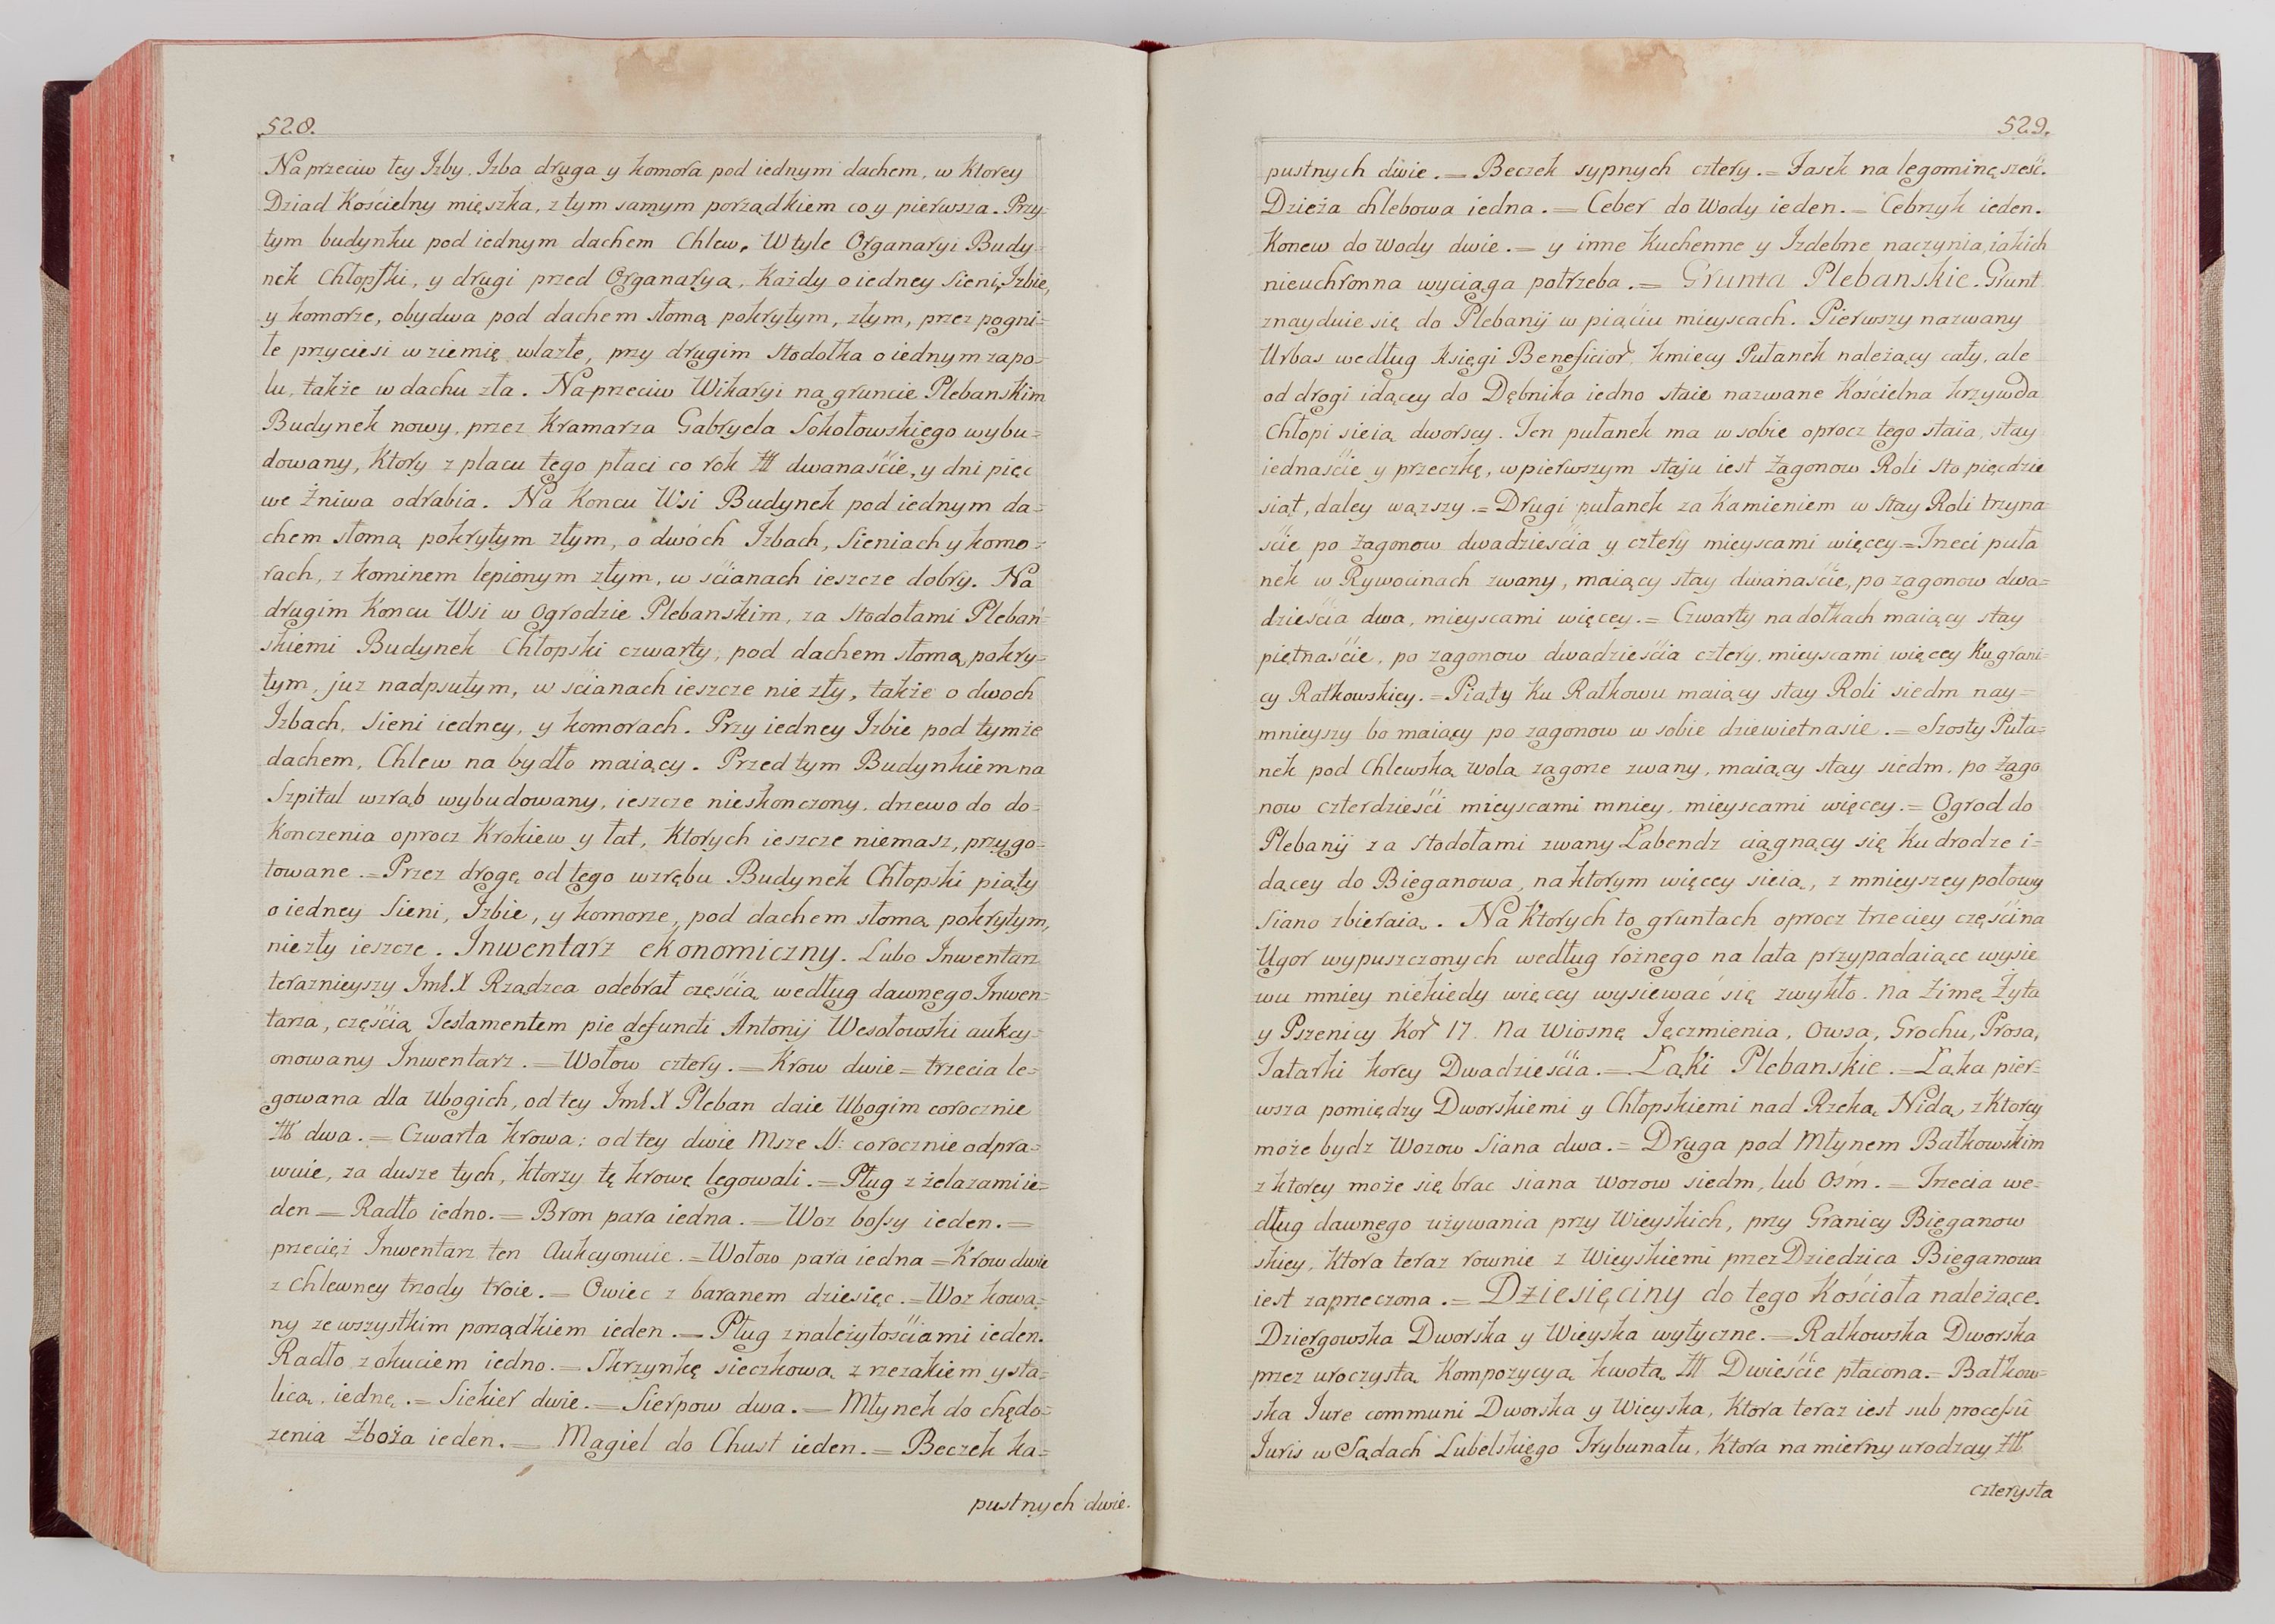 528.
Naprzeciw tey Izby, Izba druga y komora pod iednym dachem, w Ktorey
Dziad Kościelny mięszka, z tym samym porządkiem co y pierwsza. Przy-
tym budynku pod iednym dachem Chlew. W tyle Organaryi Budy-
nek Chłopski, y drugi przed Organarya, Każdy o iedney Sieni, Izbie,
y komorze, obydwa pod dachem słomą pokrytym, złym, przez pogni-
łe przyciesi w ziemię wlazłe, przy drugim Stodołka o iednym zapo-
lu, także w dachu zła. Naprzeciw Wikaryi na gruncie Plebanskim
Budynek nowy, przez Kramarza Gabryela Sokołowskiego wybu-
dowany, Ktory z placu tego płaci co rok tt dwanaście, y dni pięc
we Żniwa odrabia. Na Koncu Wsi Budynek pod iednym da-
chem słomą pokrytym złym, o dwóch Izbach, Sieniach y komo-
rach, z kominem lepionym złym, w ścianach ieszcze dobry. Na
drugim Koncu Wsi w Ogrodzie Plebanskim, za Stodołami Plebań-
skiemi Budynek Chłopski czwarty, pod dachem słomą pokry-
tym, juz nadpsutym, w ścianach ieszcze nie zły, także o dwoch
Izbach, Sieni iedney, y komorach. Przy iedney Izbie pod tymże
dachem, Chlew na bydło maiący. Przed tym Budynkiem na
Szpital wzrąb wybudowany, ieszcze nieskonczony, drzewo do do-
konczenia oprocz Krokiew y łat, Ktorych ieszcze niemasz, przygo-
towane. = Przez drogę od tego wzrębu Budynek Chłopski piąty
o iedney Sieni, Izbie, y komorze, pod dachem słomą pokrytym,
niezły ieszcze. Inwentarz ekonomiczny. Lubo Inwentarz
teraznieyszy Imć X Rządzca odebrał częścią według dawnego Inwen-
tarza, częścią Testamentem pie defuncti Antonij Wesołowski aukcy-
onowany Inwentarz. = Wołow cztery. = Krow dwie = trzecia le-
gowana dla Ubogich, od tey Imć X Pleban daie Ubogim corocznie
tt dwa. = Czwarta krowa: od tey dwie Msze S: corocznie odpra-
wuie, za dusze tych, ktorzy tę krowę legowali. = Pług z żelazami ie-
den = Radło iedno. = Bron para iedna. = Woz bosy ieden. =
przecięż Inwentarz ten Aukcyonuie. = Wołow para iedna = Krow dwie
z Chlewney trzody troie. = Owiec z baranem dziesięc. = Woz kowa-
ny ze wszystkim porządkiem ieden. = Pług z należytościami ieden.
Radło z okuciem iedno. = Skrzynkę sieczkową z rzezakiem y sta-
licą, iednę. = Siekier dwie. = Sierpow dwa. = Młynek do chędo-
zenia Zboża ieden. = Magiel do Chust ieden. = Beczek ka-
pustnych dwie.
529.
pustnych dwie. = Beczek sypnych cztery. = Fasek na legominę sześć.
Dzieża chlebowa iedna. = Ceber do Wody ieden. = Cebrzyk ieden.
Konew do Wody dwie. = y inne Kuchenne y Izdebne naczynia, iakich
nieuchronna wyciąga potrzeba. = Grunta Plebanskie. Grunt
znayduie się do Plebanij w piąciu mieyscach. Pierwszy nazwany
Urbas według księgi Beneficior. kmiecy Pułanek należący cały, ale
od drogi idącey do Dębnika iedno staie nazwane Kościelna krzywda
Chłopi sieią dworscy. Ten pułanek ma w sobie oprocz tego staia, stay
iednaście y przeczkę, w pierwszym staju iest Zagonow Roli sto pięcdzie
siąt, daley wązszy. = Drugi pułanek za Kamieniem w Stay Roli trzyna-
ście po Zagonow dwadzieścia y cztery mieyscami więcey = Trzeci puła
nek w Rywocinach zwany, maiący stay dwanaście, po zagonow dwa-
dzieścia dwa, mieyscami więcey. = Czwarty na dołkach maiący stay
piętnaście, po zagonow dwadzieścia cztery, mieyscami więcey Ku grani-
cy Rałkowskiey. = Piąty Ku Rałkowu maiący stay Roli siedm nay-
mnieyszy bo maiący po zagonow w sobie dziewietnasie. = Szosty Puła-
nek pod Chlewską Wolą zagorze zwany, maiący stay siedm, po Zago
now czterdzieści mieyscami mniey, mieyscami więcey. = Ogrod do
Plebanij za Stodołami zwany Łabendz ciągnący się ku drodze i-
dącey do Bieganowa, na ktorym więcey sieią, z mnieyszey połowy
Siano zbieraią. Na Ktorych to gruntach oprocz trzeciey części na
Ugor wypuszczonych według rożnego na lata przypadaiące wysie
wu mniey niekiedy więcey wysiewać się zwykło. Na Zimę Żyta
y Pszenicy Kor 17. Na Wiosnę Jęczmienia, Owsa, Grochu, Prosa,
Tatarki korcy Dwadzieścia. = Łąki Plebanskie. = Łąka pier-
wsza pomiędzy Dworskiemi y Chłopskiemi nad Rzeką Nidą, z Ktorey
może bydz Wozow Siana dwa. = Druga pod Młynem Bałkowskim
z ktorey może się brac siana Wozow siedm, lub Ośm. = Trzecia we-
dług dawnego używania przy Wieyskich, przy Granicy Bieganow
skiey, Ktora teraz rownie z Wieyskiemi przez Dziedzica Bieganowa
iest zaprzeczona. = Dziesięciny do tego Kościoła należące.
Dziergowska Dworska y Wieyska wytyczne. = Rałkowska Dworska
przez uroczystą Kompozycyą kwotą tt Dwieście płacona. = Bałkow-
ska Iure communi Dworska y Wieyska, Ktora teraz iest sub processu
Iuris w Sądach Lubelskiego Trybunału, Ktora na mierny urodzay tt
czterysta